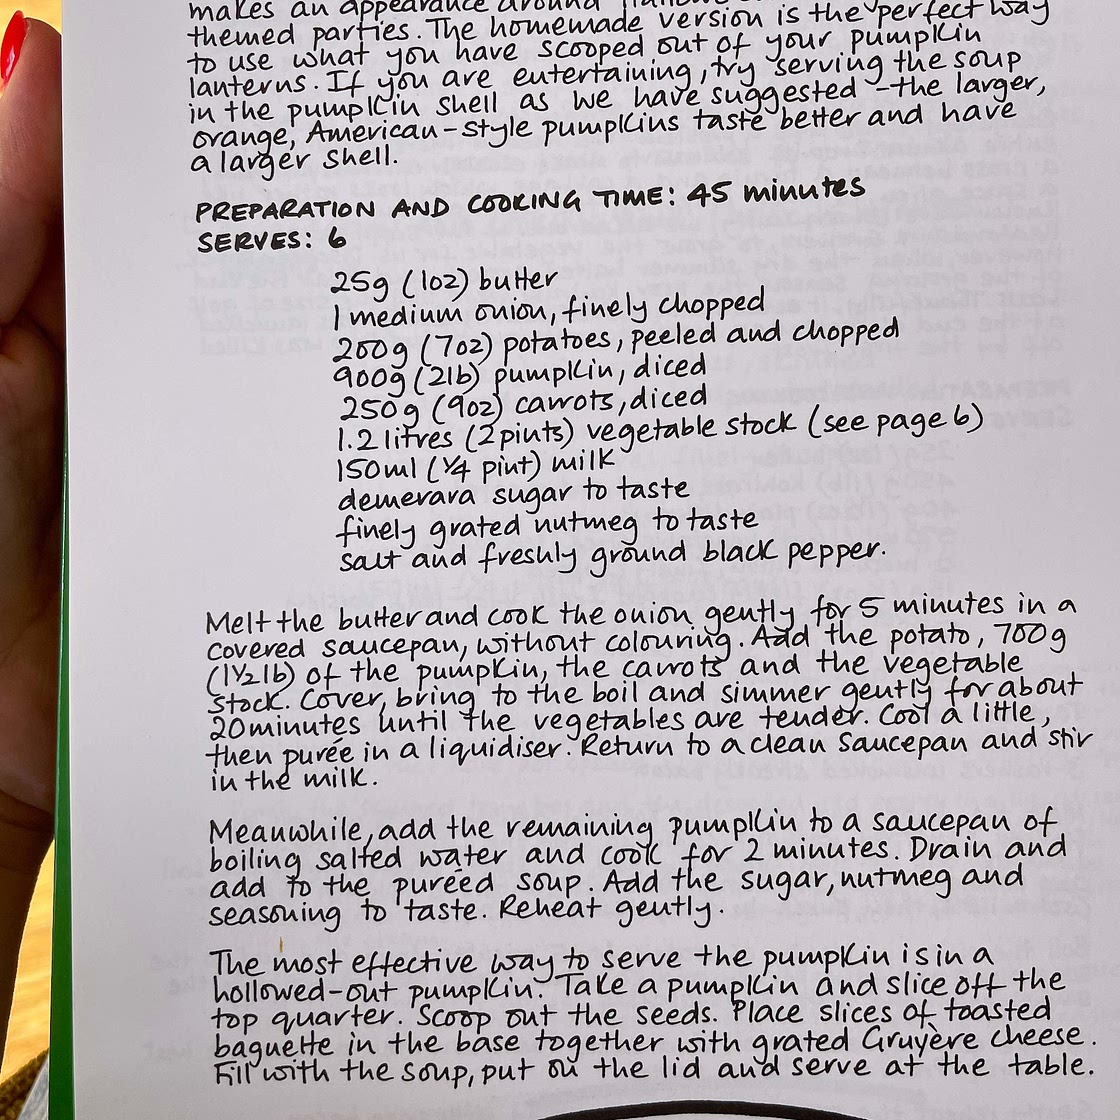 makes an appearance around
themed parties. The homemade version is the perfect way
to use what you have scooped out of your pumpkin
lanterns. If you are entertaining, try serving the soup
in the pumpkin shell as we have suggested - the larger,
orange, American-style pumpkins taste better and have
a larger shell.
PREPARATION AND COOKING TIME: 45 minutes
SERVES: 6
25g (1oz) butter
1 medium onion, finely chopped
200g (7oz) potatoes, peeled and chopped
900g (2lb) pumpkin, diced
250g (9oz) carrots, diced
1.2 litres (2 pints) vegetable stock (see page 6)
150ml (¼ pint) milk
demerara sugar to taste
finely grated nutmeg to taste
salt and freshly ground black pepper.
Melt the butter and cook the onion gently for 5 minutes in a
covered saucepan, without colouring. Add the potato, 700g
(1½lb) of the pumpkin, the carrots and the vegetable
stock. Cover, bring to the boil and simmer gently for about
20 minutes until the vegetables are tender. Cool a little,
then purée in a liquidiser. Return to a clean saucepan and stir
in the milk.
Meanwhile, add the remaining pumpkin to a saucepan of
boiling salted water and cook for 2 minutes. Drain and
add to the puréed soup. Add the sugar, nutmeg and
seasoning to taste. Reheat gently.
The most effective way to serve the pumpkin is in a
hollowed-out pumpkin. Take a pumpkin and slice off the
top quarter. Scoop out the seeds. Place slices of toasted
baguette in the base together with grated Gruyère cheese.
Fill with the soup, put on the lid and serve at the table.